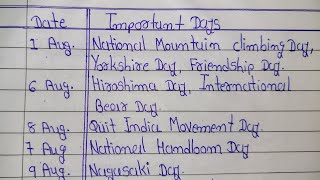 Date Important Days
1 Aug. National Mountain climbing Day,
Yorkshire Day, Friendship Day.
6 Aug. Hiroshima Day, International
Bear Day.
8 Aug. Quit India Movement Day.
7 Aug National Handloom Day
9 Aug. Nagasaki Day.